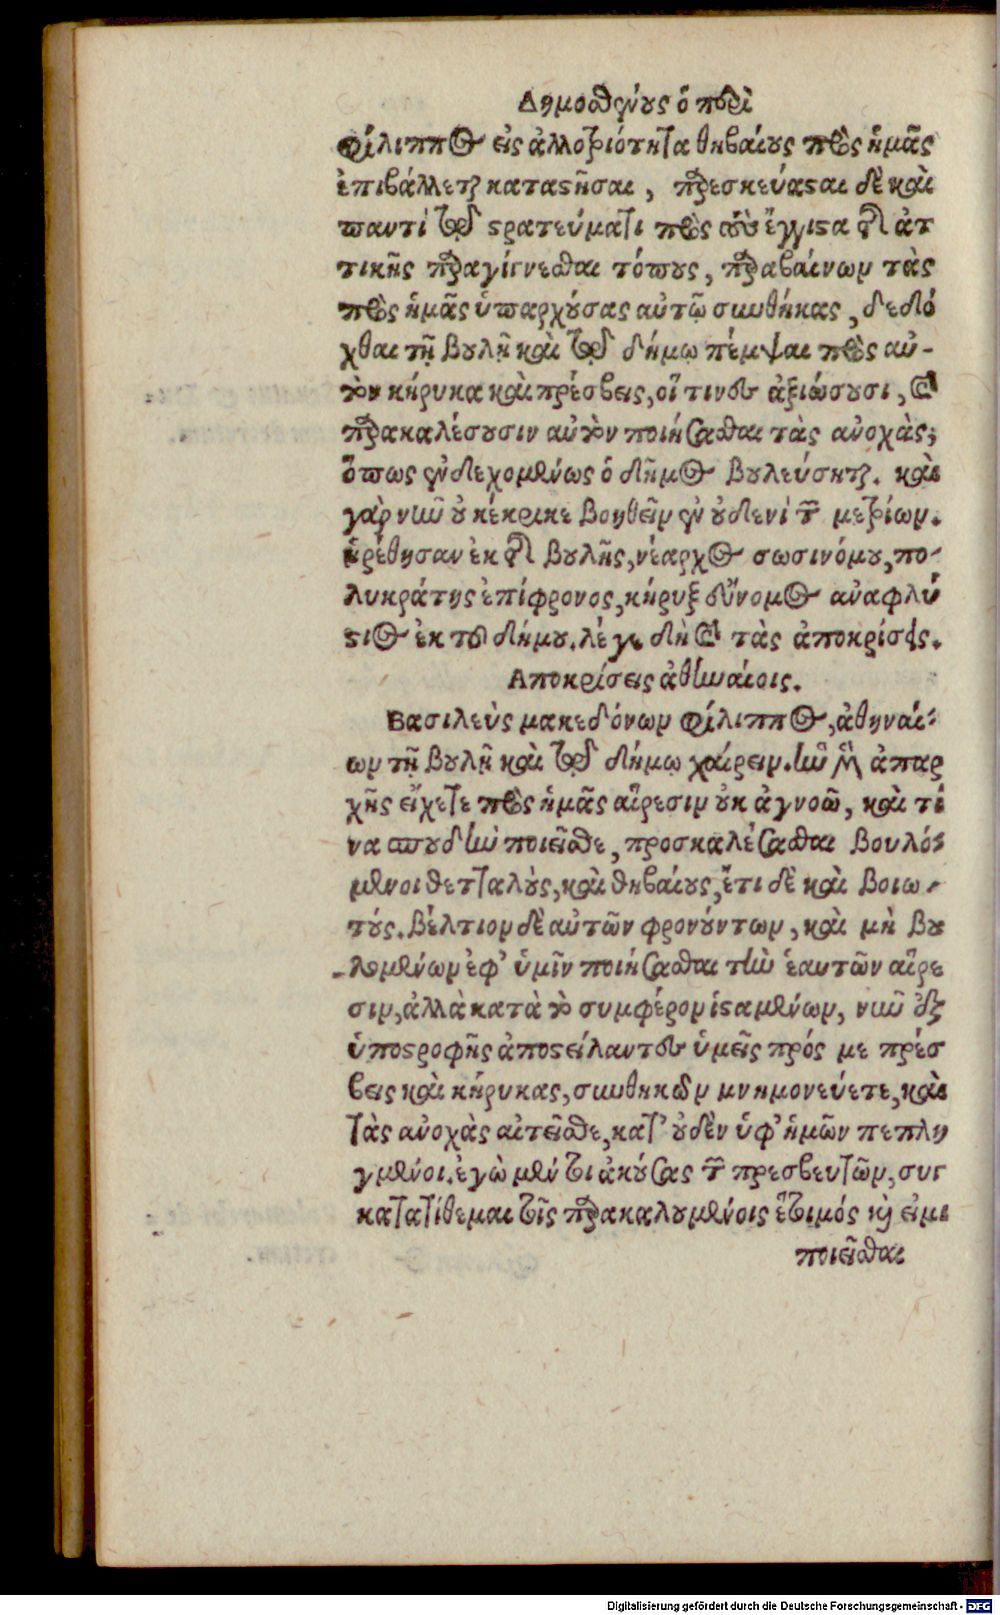 Δημοσθένους ὁ περὶ
Φίλιππος εἰς ἀλλοτριότητα θηβαίους πρὸς ἡμᾶς
ἐπιβάλλεται καταστῆσαι, παρεσκεύασαι δὲ καὶ
παντὶ τῷ στρατεύματι πρὸς τοὺς ἔγγιστα τῆς ἀτ
τικῆς παραγίγνεσθαι τόπους, παραβαίνων τὰς
πρὸς ἡμᾶς ὑπαρχούσας αὐτῷ συνθήκας, δεδό
χθαι τῇ βουλῇ καὶ τῷ δήμῳ πέμψαι πρὸς αὐ-
τὸν κήρυκα καὶ πρέσβεις, οἵ τινες ἀξιώσουσι, καὶ
παρακαλέσουσιν αὐτὸν ποιήσασθαι τὰς ἀνοχὰς;
ὅπως ἐνδεχομένως ὁ δῆμος βουλεύσηται. καὶ
γὰρ νῦν οὐ κέκρικε βοηθεῖν ἐν οὐδενὶ τῶν μετρίων.
ᾑρέθησαν ἐκ τῆς βουλῆς, νέαρχος σωσινόμου, πο-
λυκράτης ἐπίφρονος, κήρυξ εὔνομος ἀναφλύ
στιος ἐκ τοῦ δήμου. λέγε δὴ καὶ τὰς ἀποκρίσεις.
Αποκρίσεις ἀθηναίοις.
Βασιλεὺς μακεδόνων Φίλιππος, ἀθηναί-
ων τῇ βουλῇ καὶ τῷ δήμῳ χαίρειν. ἣν μὲν ἀπαρ
χῆς εἴχετε πρὸς ἡμᾶς αἵρεσιν οὐκ ἀγνοῶ, καὶ τί
να σπουδὴν ποιεῖσθε, προσκαλέσασθαι βουλό-
μενοι θετταλοὺς, καὶ θηβαίους, ἔτι δὲ καὶ βοιω-
τούς. βέλτιον δὲ αὐτῶν φρονούντων, καὶ μὴ βου
λομένων ἐφ' ὑμῖν ποιήσασθαι τὴν ἑαυτῶν αἵρε
σιν, ἀλλὰ κατὰ τὸ συμφέρον ἱσταμένων, νῦν ἐξ
ὑποστροφῆς ἀποστείλαντες ὑμεῖς πρός με πρέσ
βεις καὶ κήρυκας, συνθηκῶν μνημονεύετε, καὶ
τὰς ἀνοχὰς αἰτεῖσθε, κατ' οὐδὲν ὑφ' ἡμῶν πεπλη
γμένοι. ἐγὼ μέν τοι ἀκούσας τῶν πρεσβευτῶν, συγ
κατατίθεμαι τοῖς παρακαλουμένοις ἕτοιμός καὶ εἰμι
ποιεῖσθαι
Digitalisierung gefördert durch die Deutsche Forschungsgemeinschaft - DFG